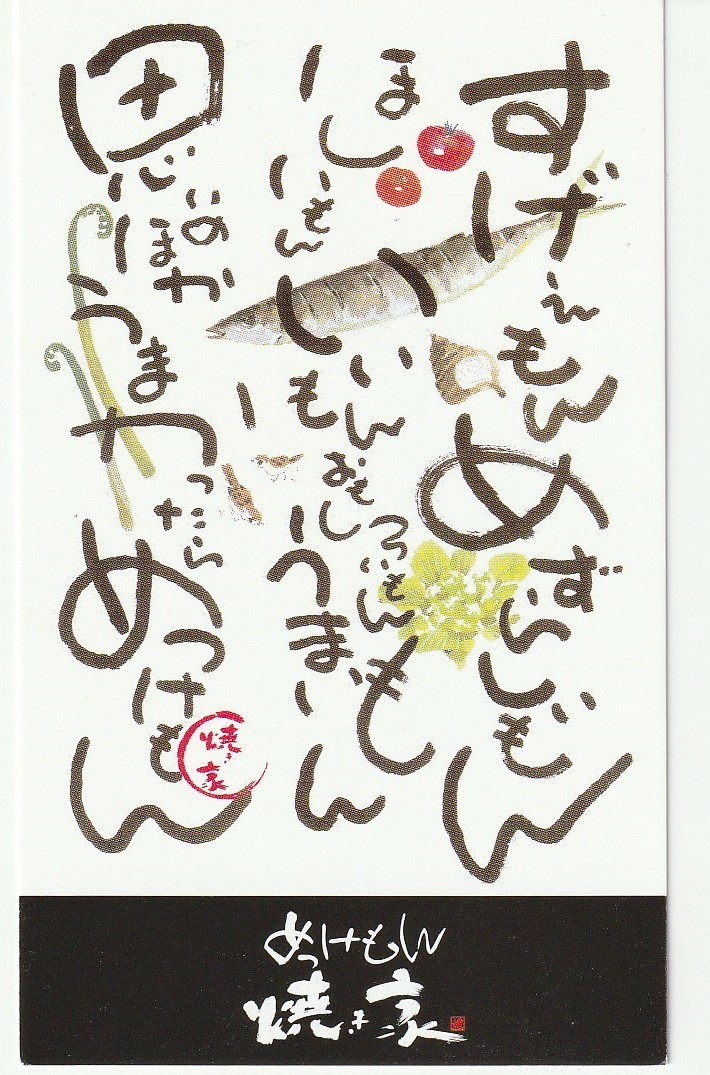 すげぇもんめずらしいもん
ほしいもんいいもんおもしろいもんうまいもん
思いのほかうまかったらめっけもん
焼き家
めっけもん
焼き家